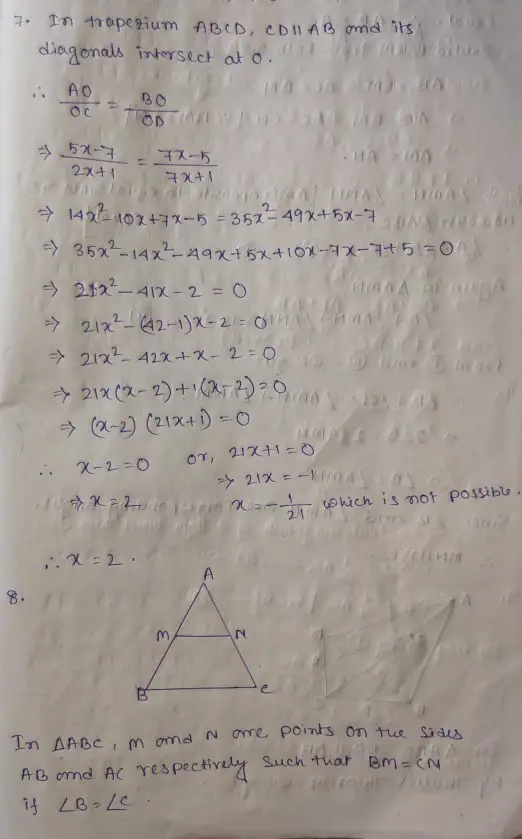 7. In trapezium ABCD, CD11 AB and its
diagonals intersect at O.
∴ AO/OC = BO/OD
⇒ 5x-7/2x+1 = 7x-5/7x+1
⇒ 14x²-10x+7x-5 = 35x²-49x+5x-7
⇒ 35x²-14x²-49x+5x+10x-7x-7+5=0
⇒ 21x²-41x-2 = 0
⇒ 21x²-(42-1)x-2=0
⇒ 21x²-42x+x-2=0
⇒ 21x(x-2)+1(x-2)=0
⇒ (x-2) (21x+1) = 0
∴ x-2=0 or, 21x+1=0
⇒ 21x = -1
⇒ x=2 x=-1/21 which is not possible.
∴ x=2.
8.
A
M N
B C
In ΔABC, M and N are points on the sides
AB and AC respectively such that BM=CN
if ∠B=∠C.